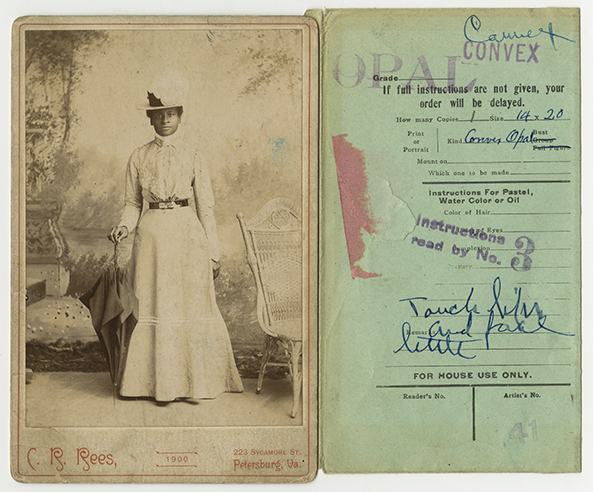 C. R. Rees,
1900
223 Sycamore St.
Petersburg, Va.
Convex
CONVEX
OPAL
Grade
If full instructions are not given, your
order will be delayed.
How many Copies 1 Size 14 x 20
Print
or
Portrait
Kind Convex Opal
Bust
Group
Full Figure
Mount on
Which one to be made
Instructions For Pastel,
Water Color or Oil
Color of Hair
of Eyes
Complexion
Instructions
read by No. 3
Remarks
Touch
and face
little
FOR HOUSE USE ONLY.
Reader's No.
Artist's No.
41